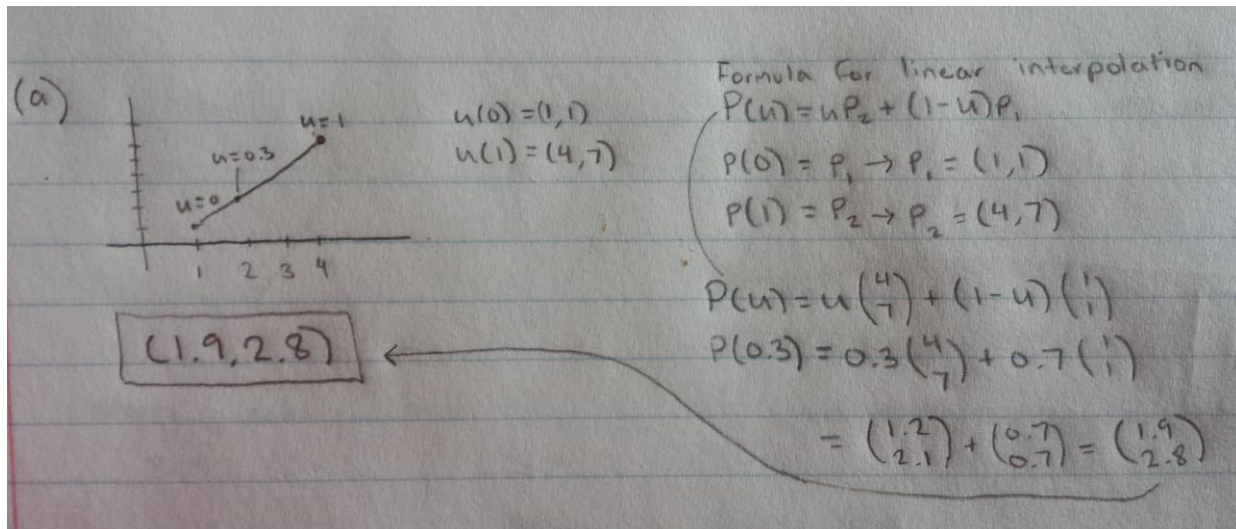 (a)
u=1
u=0.3
u=0
1 2 3 4
u(0) = (1,1)
u(1) = (4,7)
(1.9, 2.8)
Formula for linear interpolation
P(u) = uP₂ + (1-u)P₁
P(0) = P₁ → P₁ = (1,1)
P(1) = P₂ → P₂ = (4,7)
P(u) = u(4 7) + (1-u)(1 1)
P(0.3) = 0.3(4 7) + 0.7(1 1)
= (1.2 2.1) + (0.7 0.7) = (1.9 2.8)